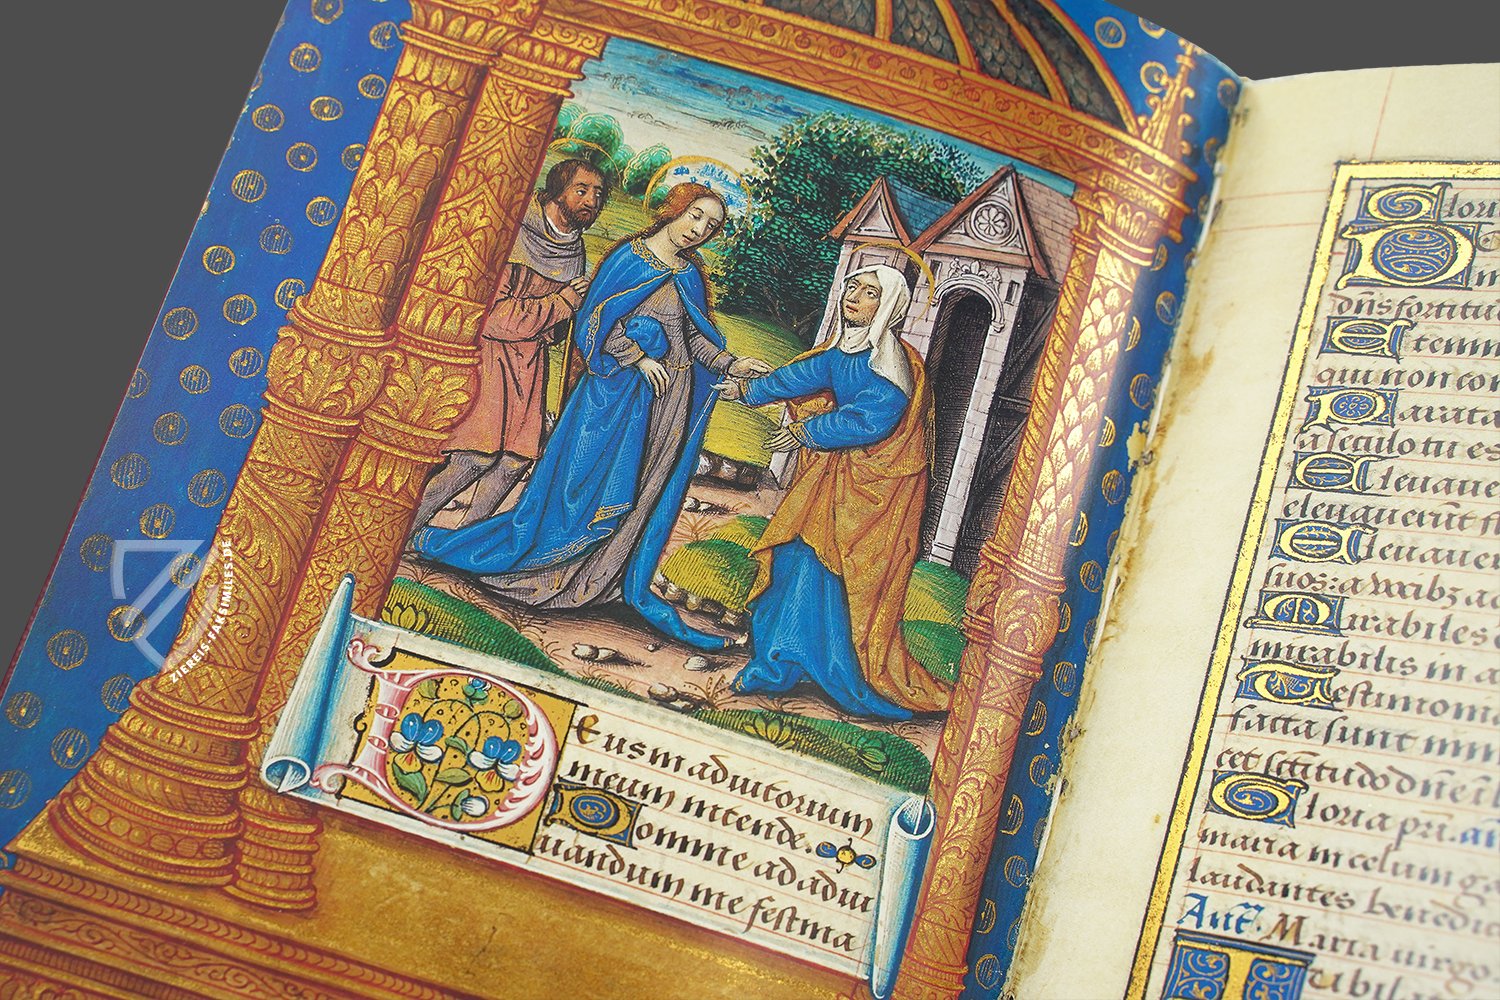 Deus in adiutorium
meum intende.
Domine ad adiu
uandum me festina
Glori
D
dn̄s fortitu
Etenim
qui non con
Parata
a seculo tu es
Eleuaue
eleuauerūt fl
Eleuaue
suos: a vocibꝫ aq
Mirabiles
mirabilis in a
Testimoni
facta sunt nim
cet sc̄titudo dn̄e ī l
Gloria pr̄i. an̄
maria in celum ga
laudantes benedic
Ant. Maria virgo
Iubil
ZIEREIS-FAKSIMILES.DE